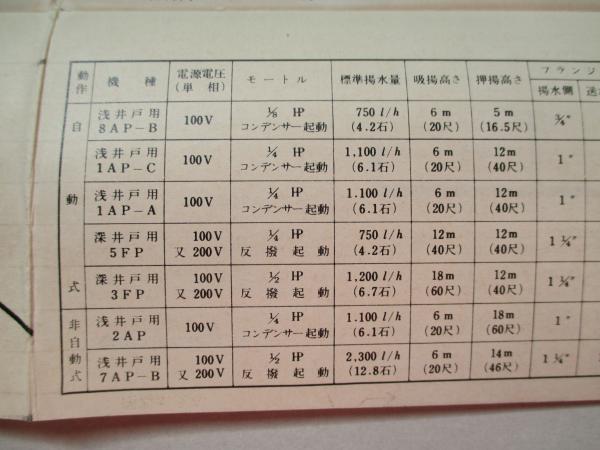 動作 機種 電源電圧(単相) モートル 標準揚水量 吸揚高さ 押揚高さ フランジ
揚水側 送
自動式
浅井戸用 8AP-B 100V ⅛ HP コンデンサー起動 750 l/h (4.2石) 6m (20尺) 5m (16.5尺) ¾"
浅井戸用 1AP-C 100V ¼ HP コンデンサー起動 1,100 l/h (6.1石) 6m (20尺) 12m (40尺) 1"
浅井戸用 1AP-A 100V ¼ HP コンデンサー起動 1.100 l/h (6.1石) 6m (20尺) 12m (40尺) 1"
深井戸用 5FP 100V 又200V ¼ HP 反撥起動 750 l/h (4.2石) 12m (40尺) 12m (40尺) 1¼"
深井戸用 3FP 100V 又200V ½ HP 反撥起動 1,200 l/h (6.7石) 18m (60尺) 12m (40尺) 1¼"
非自動式
浅井戸用 2AP 100V ¼ HP コンデンサー起動 1.100 l/h (6.1石) 6m (20尺) 18m (60尺) 1"
浅井戸用 7AP-B 100V 又200V ½ HP 反撥起動 2,300 l/h (12.8石) 6m (20尺) 14m (46尺) 1¼"